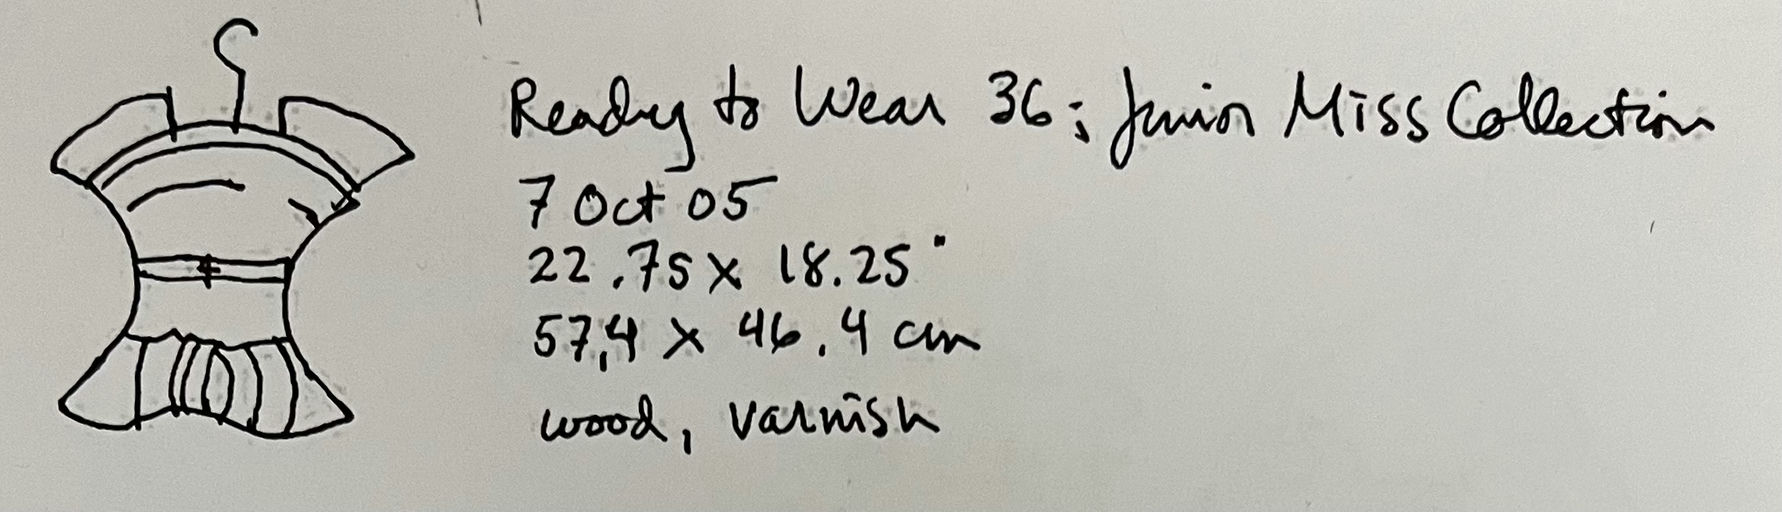 Ready to Wear 36; Junior Miss Collection
7 Oct 05
22.75 x 18.25"
57,4 x 46.4 cm
wood, varnish